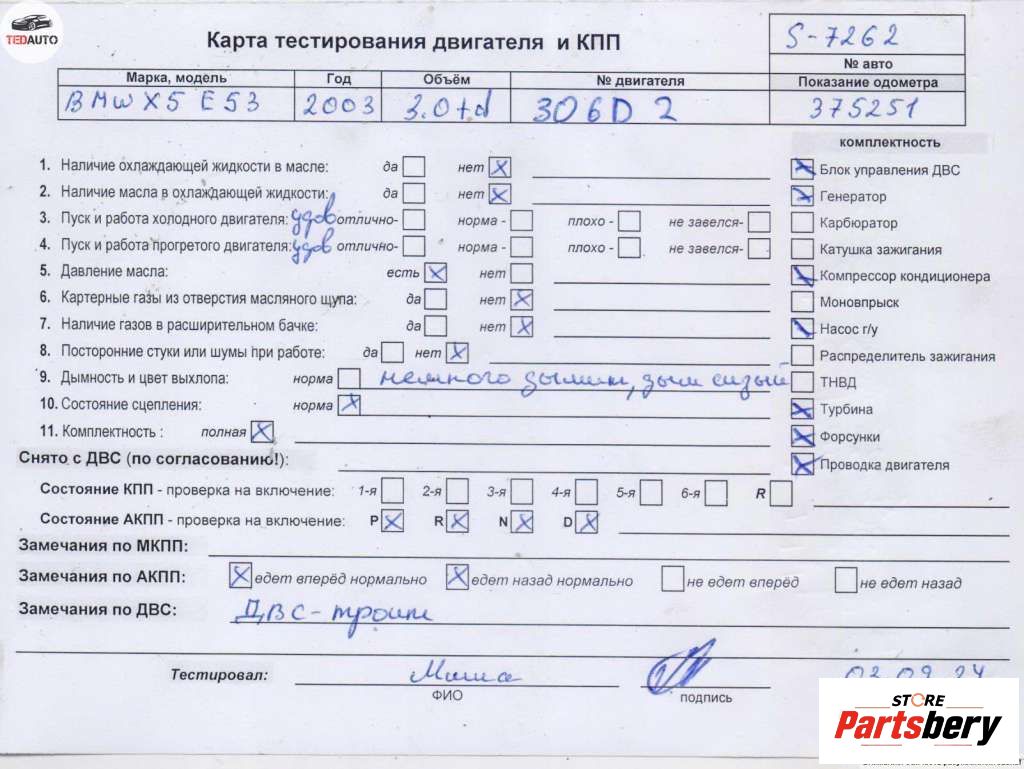 TEDAUTO
Карта тестирования двигателя и КПП
S-7262
№ авто
Марка, модель Год Объём № двигателя Показание одометра
BMW X5 E53 2003 3.0td 306D 2 375251
комплектность
1. Наличие охлаждающей жидкости в масле: да нет X Блок управления ДВС
2. Наличие масла в охлаждающей жидкости: да нет X Генератор
3. Пуск и работа холодного двигателя: удов отлично- норма - плохо - не завелся- Карбюратор
4. Пуск и работа прогретого двигателя: удов отлично- норма - плохо - не завелся- Катушка зажигания
5. Давление масла: есть X нет Компрессор кондиционера
6. Картерные газы из отверстия масляного щупа: да нет X Моновпрыск
7. Наличие газов в расширительном бачке: да нет X Насос г/у
8. Посторонние стуки или шумы при работе: да нет X Распределитель зажигания
9. Дымность и цвет выхлопа: норма немного дымит, дым сизый ТНВД
10. Состояние сцепления: норма X Турбина
11. Комплектность : полная X Форсунки
Снято с ДВС (по согласованию!): Проводка двигателя
Состояние КПП - проверка на включение: 1-я 2-я 3-я 4-я 5-я 6-я R
Состояние АКПП - проверка на включение: P X R X N X D X
Замечания по МКПП:
Замечания по АКПП: X едет вперёд нормально X едет назад нормально не едет вперёд не едет назад
Замечания по ДВС: ДВС-троит
Тестировал: Миша
ФИО подпись
STORE
Partsbery